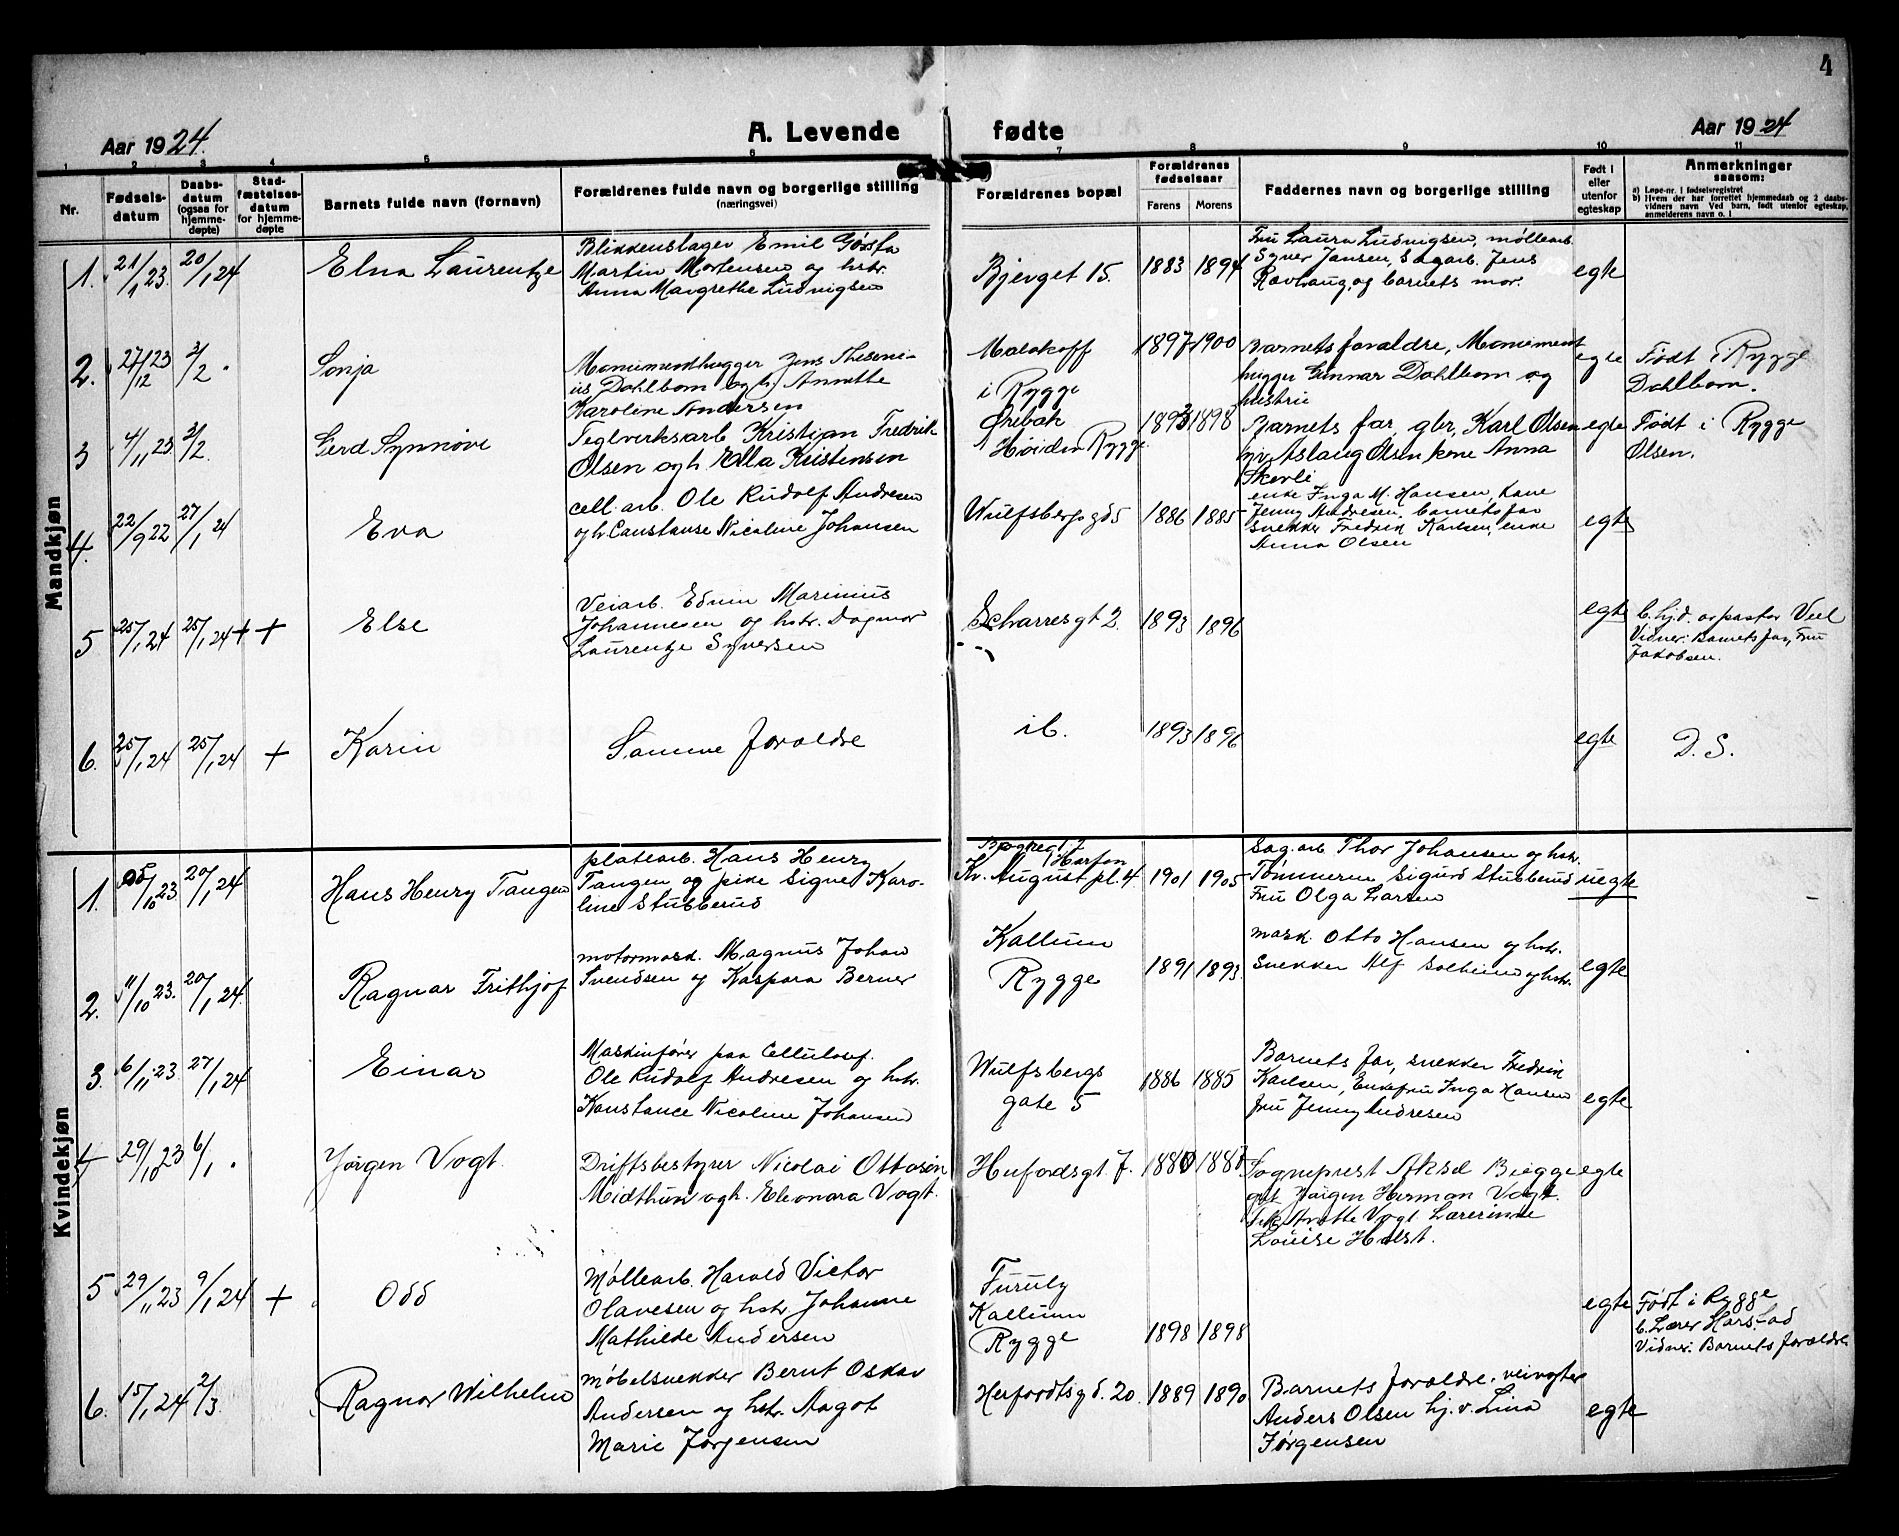 4
Aar 1924.
A. Levende fødte
Aar 1924
1 2 3 4 5 6 7 8 9 10 11
Nr.
Fødsels-
datum
Daabs-
datum
(ogsaa for
hjemme-
døpte)
Stad-
fæstelses-
datum
for hjemme-
døpte
Barnets fulde navn (fornavn)
Forældrenes fulde navn og borgerlige stilling
(næringsvei)
Forældrenes bopæl
Forældrenes
fødselsaar
Farens Morens
Faddernes navn og borgerlige stilling
Født i
eller
utenfor
egteskap
Anmerkninger
saasom:
a) Løpe-nr. i fødselsregistret
b) Hvem der har forrettet hjemmedaab og 2 daabs-
vidners navn. Ved barn, født utenfor egteskap,
anmelderens navn o. l
Mandkjøn
1. 21/1 23. 20/1 24
Elna Laurentze
Blikkenslager Emil
Martin Mortensen og hstr.
Anna Margrethe Ludvigsen
Bjerget 15.
1883 1894
Fru Laura Ludvigsen, møllearb.
Syver Jansen, Sagarb. Jens
og barnets mor.
egte
2. 27/12 23 3/2 .
Sonja
Monumenthugger Jens Theseni-
us Dahlbom og h. Annette
Karoline Andersen
Malakoff
i Rygge
1897 1900
Barnets forældre, Monument
hugger Gunnar Dahlbom og
hustru
egte
Født i Rygge
Dahlbom.
3 4/11 23 3/2.
Gerd Synnøve
Teglverksarb Kristian Fredrik
Olsen og h. Ella Kristensen
Ørebak
Høiden Rygge
1893 1898
Barnets far, gbr. Karl Olsen
Aslaug Olsen kone Anna
Skovli
egte
Født i Rygge
Olsen.
4. 22/9 22 27/1 24
Eva
cell. arb. Ole Rudolf Andresen
og h. Constanse Nicoline Johansen
Wulfsbergsgd 5
1886 1885
enke Inga M. Hansen, kone
Jenny Andresen, barnets far
snekker Fredrik Karlsen, enke
Anna Olsen
egte
5 25/1 24 25/1 24 + +
Else
Veiarb. Edvin Marinius
Johannesen og hstr. Dagmar
Laurentze Syversen
Scharresgt 2.
1893 1896
egte
b. hj.d. av pastor Veel
Vidner: Barnets far, Fru
Jakobsen.
6. 25/1 24 25/1 24 +
Karin
Samme forældre
ib.
1893 1896
egte
D. S.
Kvindekjøn
1. 25/10 23 20/1 24
Hans Henry Tangen
platearb. Hans Henry
Tangen og pike Signe Karo-
line Stubberud
Kr. August pl. 4.
1901 1905
Sag.arb Thor Johansen og hstr.
Sigurd Stubberud
Fru Olga Larsen
uegte
2. 11/10 23. 20/1 24.
Ragnar Frithjof
motormask. Magnus Johan
Svendsen og Kaspara Berner
Kallum
Rygge
1891 1893.
mask. Otto Hansen og hstr.
Snekker Alf Solheim og hstr.
egte
3. 6/11 23 27/1 24
Einar
Maskinfører paa Cellulosef.
Ole Rudolf Andresen og hstr.
Konstance Nicoline Johansen
Wulfsbergs
gate 5
1886 1885
Barnets far, snekker Fredrik
Karlsen, Enkefru Inga Hansen
fru Jenny Andresen
egte
4 29/10 23 6/1 .
Jørgen Vogt.
Driftsbestyrer Nicolai Ottosøn
Midthun og h. Eleonara Vogt.
Hufodsgt 7.
1880 1887
Sogneprest Aksel Bugge
Jørgen Herman Vogt
Vogt Lærerinde
Louise Holst.
egte
5 29/11 23 9/1 24 +
Odd
Møllearb. Harald Victor
Olavesen og hstr. Johanne
Mathilde Andersen
Furuly
Kallum
Rygge
1898 1898
egte
Født i Rygge
b. Lærer Harstad
Vidner: Barnets forældre
6. 15/1 24 2/3.
Ragnar Wilhelm
møbelsnekker Bernt Oskar
Andersen og hstr. Aagot
Marie Jørgensen
Herfordtsgd. 20.
1889 1890
Barnets forældre, veivogter
Anders Olsen hj. v. Lina
Jørgensen
egte